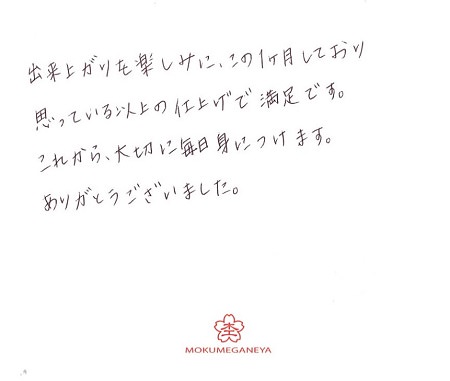 出来上がりを楽しみに、この1ヶ月しており
思っている以上の仕上げで満足です。
これから、大切に毎日身につけます。
ありがとうございました。
MOKUMEGANEYA